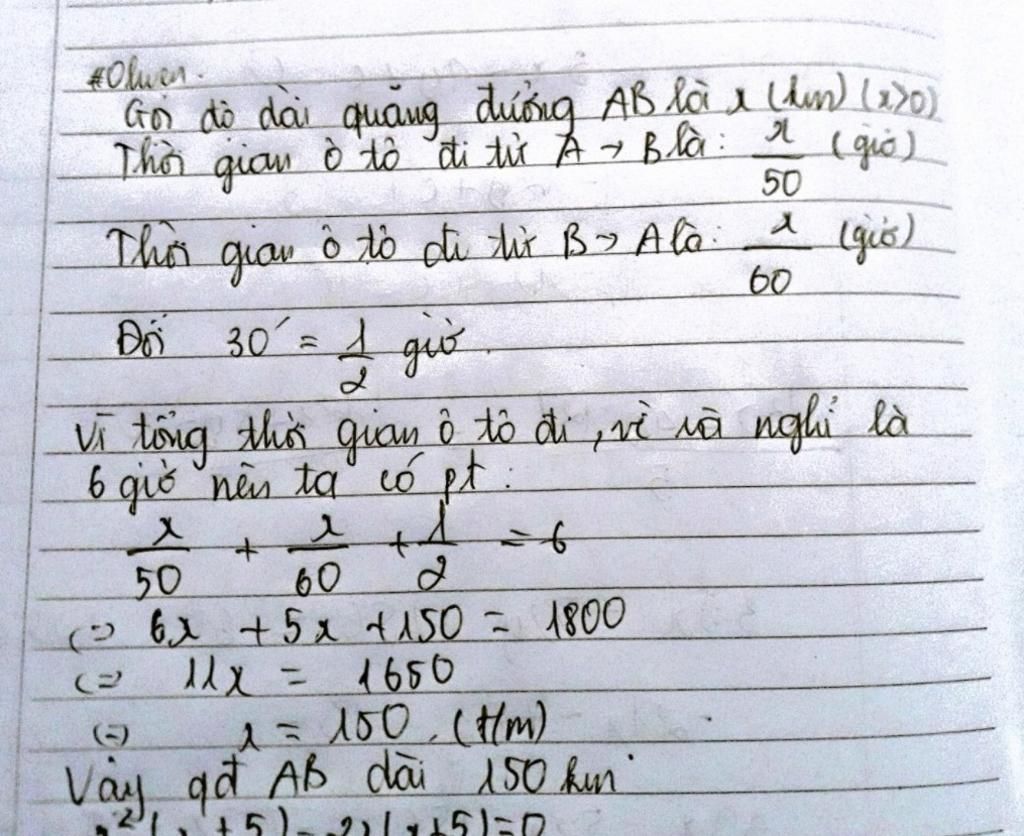 #Olwen.
Gọi độ dài quãng đường AB là x (km) (x>0)
Thời gian ô tô đi từ A → B là: x/50 (giờ)
Thời gian ô tô đi từ B → A là: x/60 (giờ)
Đổi 30' = 1/2 giờ.
Vì tổng thời gian ô tô đi, về và nghỉ là
6 giờ nên ta có pt:
x/50 + x/60 + 1/2 = 6
(=) 6x + 5x + 150 = 1800
(=) 11x = 1650
(=) x = 150. (t/m)
Vậy qđ AB dài 150 km
x²(x+5)-2x(x+5)=0